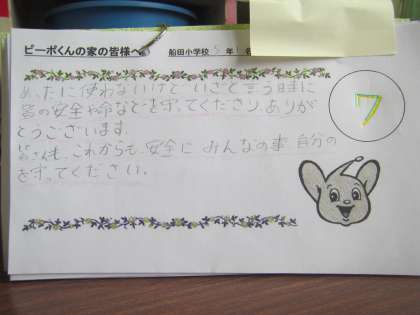 ピーポくんの家の皆様へ 船田小学校 5 年
めったに使わないけどいざと言う時に
皆の安全や命などを守ってくださり、ありが
とうございます。
皆さんも、これからも、安全に みんなの事 自分の
を守ってください。
ワ